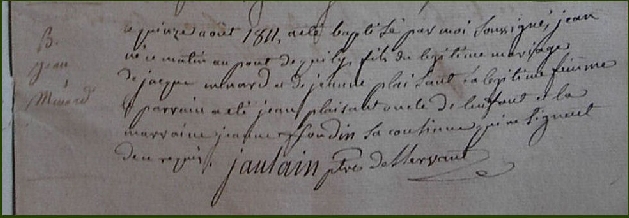 B.
jean
Minard
le quinze aout 1811, a été baptisé par moi soussigné, jean
né ce matin au pont de quily, fils du légitime mariage
de jacque minard et de jeanne plaisant sa légitime femme
parrain a été jean plaisant oncle de l'enfant et la
marraine jeanne sa cousine qui ne signent
de ce requis, jaulain ptre desservant